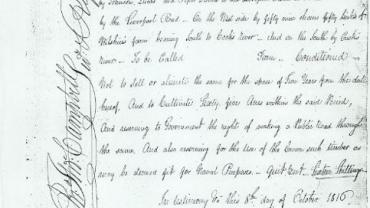 by the Liverpool Road - On the West side by fifty nine chains fifty links of
Wilshires farm bearing South to Cooks river - and on the South by Cooks
river - To be Called Farm - Conditioned -
Not to sell or alienate the same for the space of Five Years from the date
hereof, And to Cultivate Sixty five Acres within the said Period,
And reserving to Government the right of making a Public Road through
the same. And also reserving for the Use of the Crown such timber as
may be deemed fit for Naval Purposes - Quit Rent - Sixteen Shillings
In testimony &c this 8th day of October 1816
Campbell